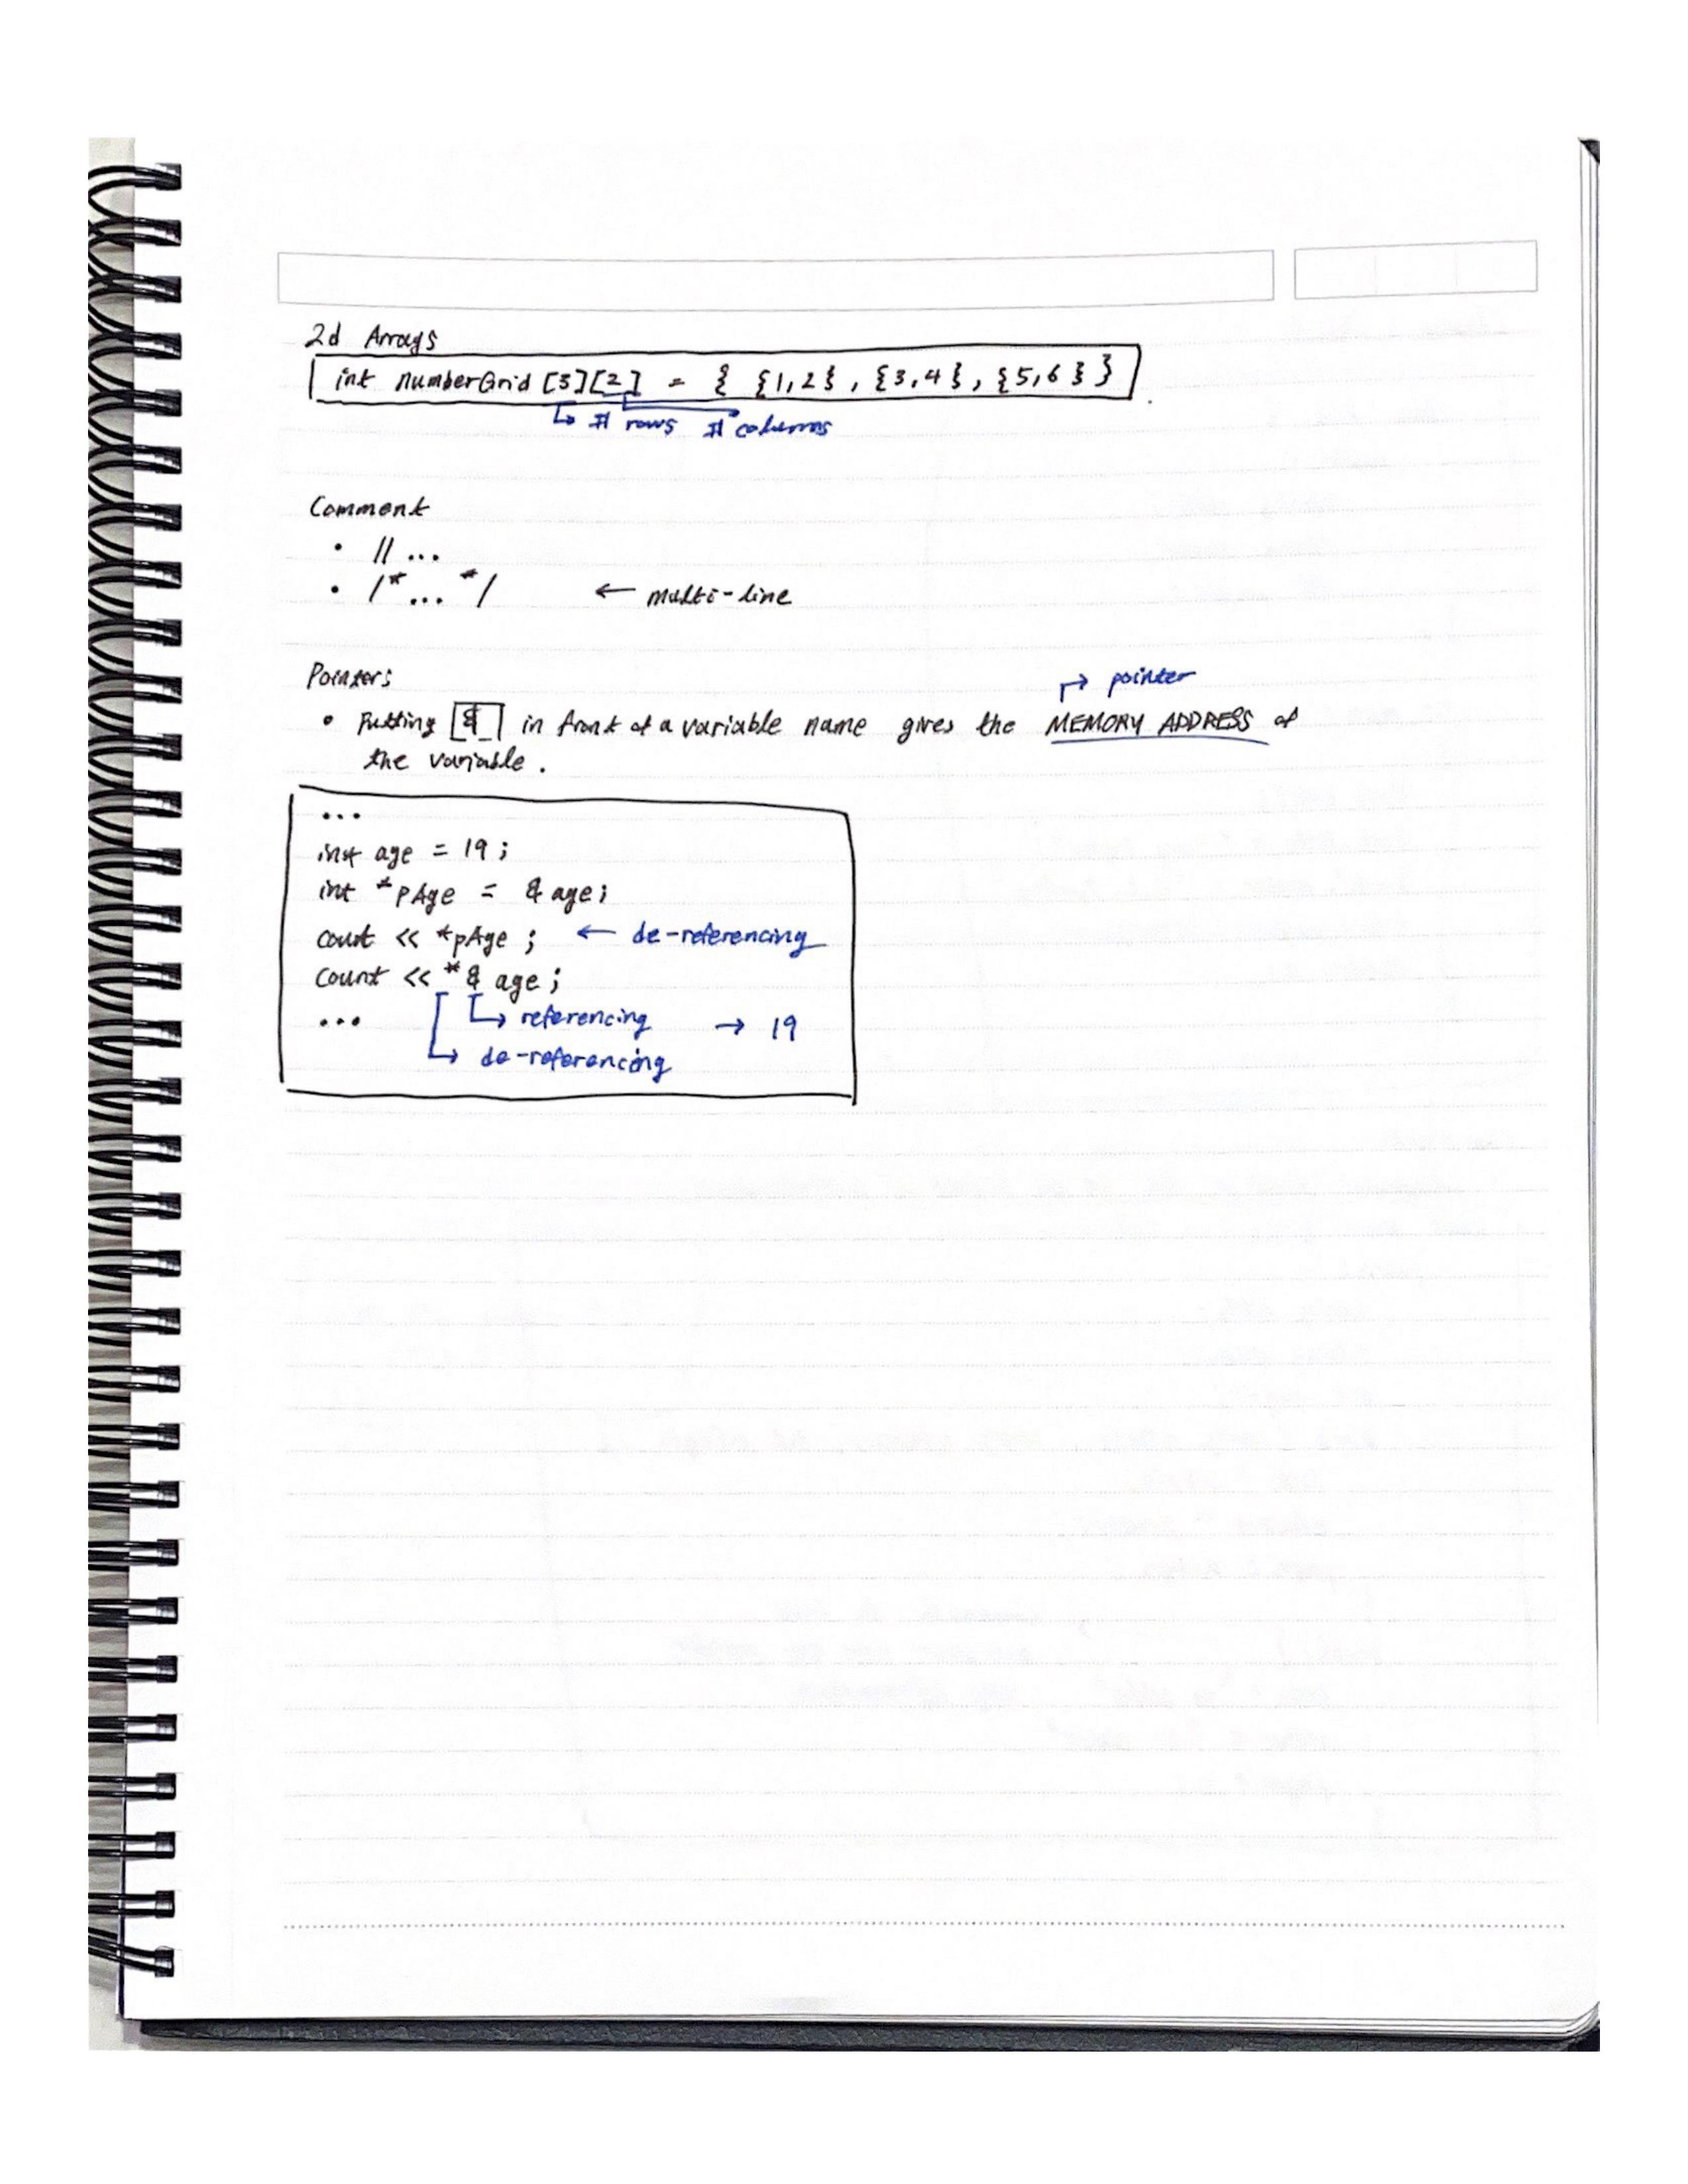 2d Arrays
int numberGrid [3][2] = { {1,2} , {3,4} , {5,6} }
↳ # rows # columns
Comment
• // ...
• /* ... */ ← multi-line
Pointers
↱ pointer
• Putting & in front of a variable name gives the MEMORY ADDRESS of
the variable .
...
int age = 19 ;
int *pAge = & age ;
cout << *pAge ; ← de-referencing
count << *& age ;
... ↳ referencing → 19
↳ de-referencing